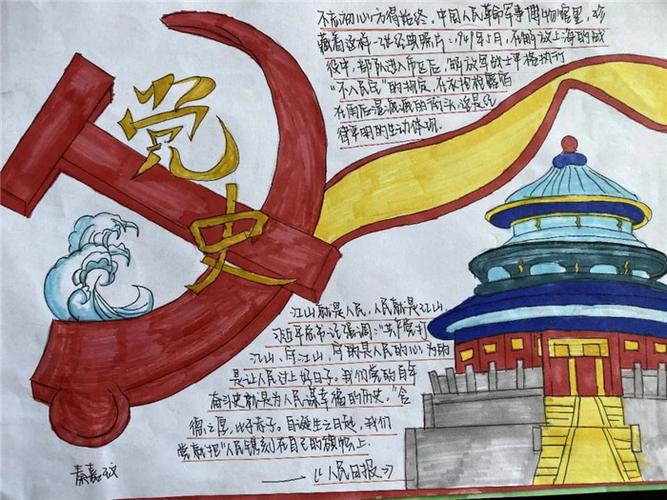 党史
不忘初心方得始终,中国人民革命军事博物馆里,珍
藏着这样一张经典照片:1949年5月,在解放上海的战
役中,部队进入市区后,解放军战士严格执行
"不入民宅"的规定,在
市雨后湿漉漉的街头
律严明的生动体现.
江山就是人民,人民就是江山,
习近平总书记强调:"共产党打
江山、守江山,守的是人民的心,为的
是让人民过上好日子。我们党的百年
奋斗史就是为人民谋幸福的历史。"含
德之厚,比于赤子。自诞生之日起,我们
党就把"人民"镌刻在自己的旗帜上.
——《人民日报》
秦嘉